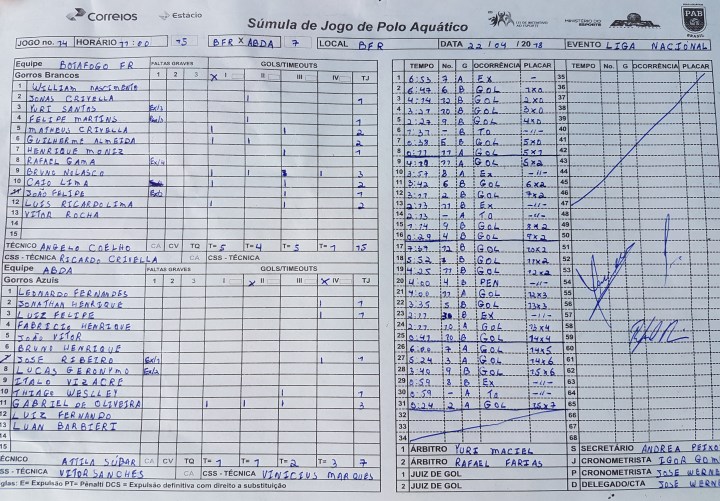 Correios
Estacio
Súmula de Jogo de Polo Aquático
MINISTÉRIO DO ESPORTE
PAB
BRASIL
JOGO no. 14 HORÁRIO 11:00 15 BFR X ABDA 7 LOCAL BFR DATA 22 / 04 / 20 18 EVENTO LIGA NACIONAL
Equipe BOTAFOGO FR FALTAS GRAVES GOLS/TIMEOUTS
Gorros Brancos 1 2 3 X I II III IV TJ
1 WILLIAM NASCIMENTO
2 JONAS CRIVELLA 1 1
3 YURI SANTOS
4 FELIPE MARTINS 1 1
5 MATHEUS CRIVELLA 1 1 2
6 GUILHERME ALMEIDA 2
7 HENRIQUE MONIZ 1 1
8 RAFAEL GAMA
9 BRUNO NOLASCO 3
10 CAIO LIMA 2
11 JOÃO FELIPE 1
12 LUIS RICARDO LIMA 2
13 VITOR ROCHA
14
15
TÉCNICO ANGELO COELHO CA CV TQ T= 5 T= 4 T= 5 T= 1 15
CSS - TÉCNICA RICARDO CRIVELLA CA
Equipe ABDA FALTAS GRAVES GOLS/TIMEOUTS
Gorros Azuis 1 2 3 I X II III X IV TJ
1 LEONARDO FERNANDES
2 JONATHAN HENRIQUE 1 1
3 LUIZ FELIPE 1 1
4 FABRICIO HENRIQUE
5 JOÃO VITOR
6 BRUNO HENRIQUE
7 JOSÉ RIBEIRO 1 1
8 LUCAS GERONYMO
9 ITALO VIZACRE
10 THIAGO WESLLEY 1 1
11 GABRIEL DE OLIVEIRA 1 1 1 3
12 LUIZ FERNANDO
13 LUAN BARBIERI
14
15
TÉCNICO ATTILA SUDAR CA CV TQ T= 1 T= 1 T= 2 T= 3 7
CSS - TÉCNICA VITOR SANCHES CA CSS - TÉCNICA VINICIUS MARQUES
Siglas: E= Expulsão PT= Pênalti DCS = Expulsão definitiva com direito a substituição
TEMPO No. G OCORRÊNCIA PLACAR
1 6:53 7 A EX -
2 6:47 6 B GOL 1X0
3 4:14 12 B GOL 2X0
4 3:27 10 B GOL 3X0
5 2:27 9 B GOL 4X0
6 1:37 - B TO -11-
7 0:38 5 B GOL 5X0
8 0:11 11 A GOL 5X1
9 4:18 11 A GOL 5X2
10 3:57 8 A EX -11-
11 3:42 6 B GOL 6X2
12 B GOL 7X2
13 B EX -11-
14 - A TO -11-
15 1:14 9 B GOL 8X2
16 0:29 4 B GOL 9X2
17 12 B GOL 10X2
18 5:52 B GOL 11X2
19 4:25 11 B GOL 12X2
20 4:00 4 B PEN -11-
21 4:00 11 A GOL 12X3
22 3:35 5 B GOL 13X3
23 B EX -11-
24 10 A GOL 13X4
25 0:47 10 B GOL 14X4
26 6:00 7 A GOL 14X5
27 5:24 3 A GOL 14X6
28 3:40 9 B GOL 15X6
29 0:59 8 B EX -11-
30 0:59 - A TO -11-
31 0:24 2 A GOL 15X7
32
33
34
TEMPO No. G OCORRÊNCIA PLACAR
35
36
37
38
39
40
41
42
43
44
45
46
47
48
49
50
51
52
53
54
55
56
57
58
59
60
61
62
63
64
65
66
67
68
1 ÁRBITRO YURI MACIEL
2 ÁRBITRO RAFAEL FARIAS
1 JUIZ DE GOL
2 JUIZ DE GOL
S SECRETÁRIO ANDREA PEIXO
J CRONOMETRISTA IGOR GOM
P CRONOMETRISTA JOSE WERNE
D DELEGADO/CTA JOSE WERNE